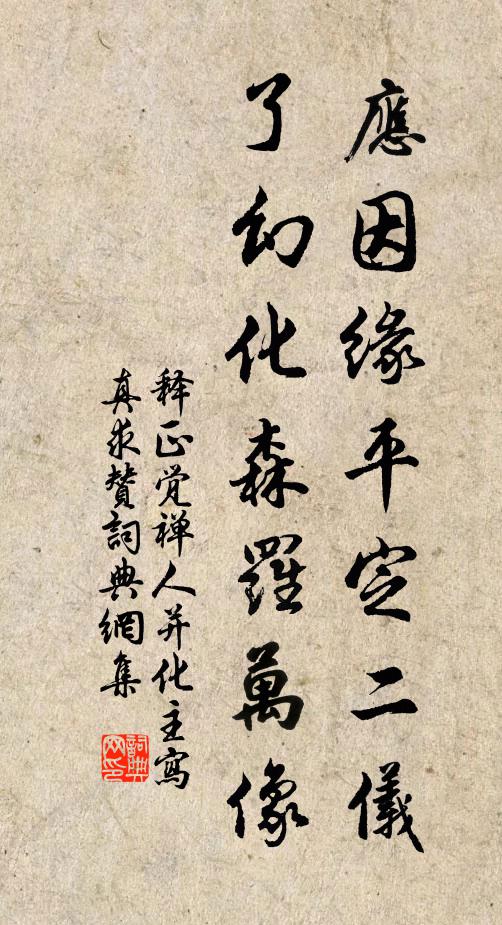 應因緣平定二儀
了幻化森羅萬像
释正觉禅人并化主寫
真求贊詞典網集
詞典网印